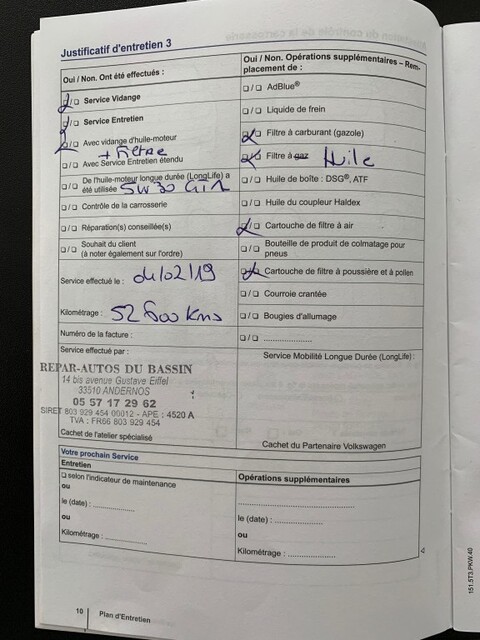 Justificatif d'entretien 3
Oui / Non. Ont été effectués :
❑/❑ Service Vidange
❑/❑ Service Entretien
❑/❑ Avec vidange d'huile-moteur
+ Filtre
❑/❑ Avec Service Entretien étendu
❑/❑ De l'huile-moteur longue durée (LongLife) a
été utilisée 5W30
❑/❑ Contrôle de la carrosserie
❑/❑ Réparation(s) conseillée(s)
❑/❑ Souhait du client
(à noter également sur l'ordre)
Service effectué le : 04/02/19
Kilométrage : 52 600 Kms
Numéro de la facture :
Service effectué par :
REPAR-AUTOS DU BASSIN
14 bis avenue Gustave Eiffel
33510 ANDERNOS
05 57 17 29 62
SIRET 803 929 454 00012 - APE : 4520 A
TVA : FR66 803 929 454
Cachet de l'atelier spécialisé
Oui / Non. Opérations supplémentaires – Rem-
placement de :
❑/❑ AdBlue®
❑/❑ Liquide de frein
❑/❑ Filtre à carburant (gazole)
❑/❑ Filtre à gaz Huile
❑/❑ Huile de boîte : DSG®, ATF
❑/❑ Huile du coupleur Haldex
❑/❑ Cartouche de filtre à air
❑/❑ Bouteille de produit de colmatage pour
pneus
❑/❑ Cartouche de filtre à poussière et à pollen
❑/❑ Courroie crantée
❑/❑ Bougies d'allumage
❑/❑ .....................
Service Mobilité Longue Durée (LongLife) :
Cachet du Partenaire Volkswagen
Votre prochain Service
Entretien
❑ selon l'indicateur de maintenance
ou
le (date) : ..................
ou
Kilométrage : ..................
Opérations supplémentaires
..................
le (date) : ..................
ou
Kilométrage : ..................
10 Plan d'Entretien
151.5T3.PKW.40